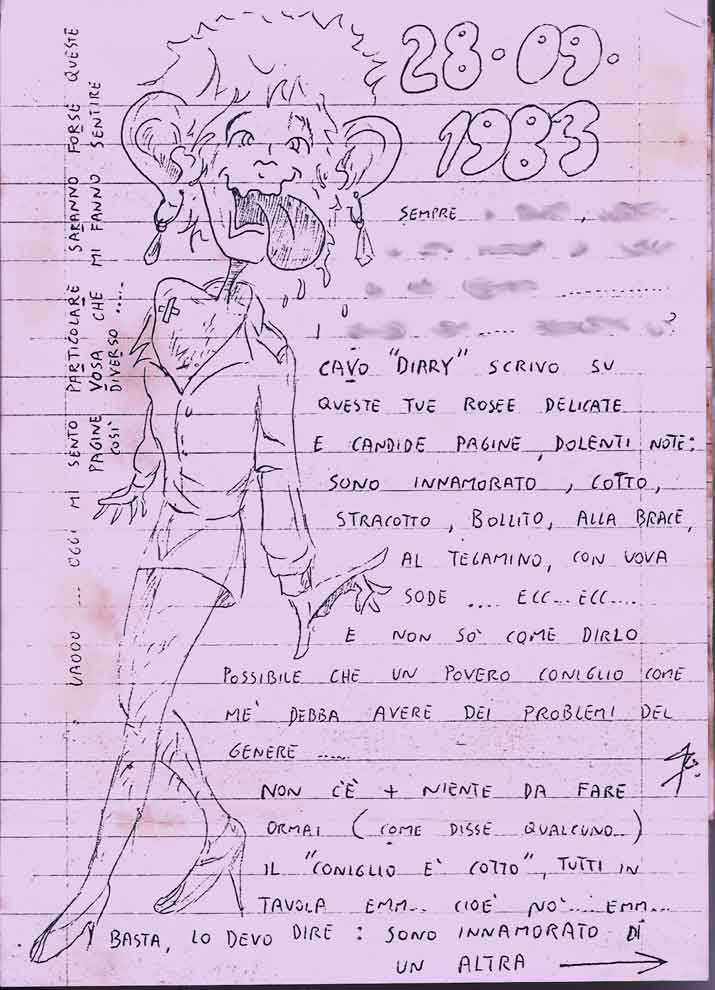 28.09.
1983
SEMPRE
CAVO "DIARY" SCRIVO SU
QUESTE TUE ROSEE DELICATE
E CANDIDE PAGINE, DOLENTI NOTE:
SONO INNAMORATO, COTTO,
STRACOTTO, BOLLITO, ALLA BRACE,
AL TEGAMINO, CON UOVA
SODE .... ECC... ECC....
E NON SO' COME DIRLO
POSSIBILE CHE UN POVERO CONIGLIO COME
ME' DEBBA AVERE DEI PROBLEMI DEL
GENERE .....
NON C'È + NIENTE DA FARE
ORMAI (COME DISSE QUALCUNO...)
IL "CONIGLIO E' COTTO", TUTTI IN
TAVOLA EMM... CIOE' NO'.... EMM...
BASTA, LO DEVO DIRE : SONO INNAMORATO DI
UN ALTRA
UAOOU ... OGGI MI SENTO PARTICOLARE SARANNO FORSE QUESTE
PAGINE VOSA CHE MI FANNO SENTIRE
COSÌ DIVERSO .....